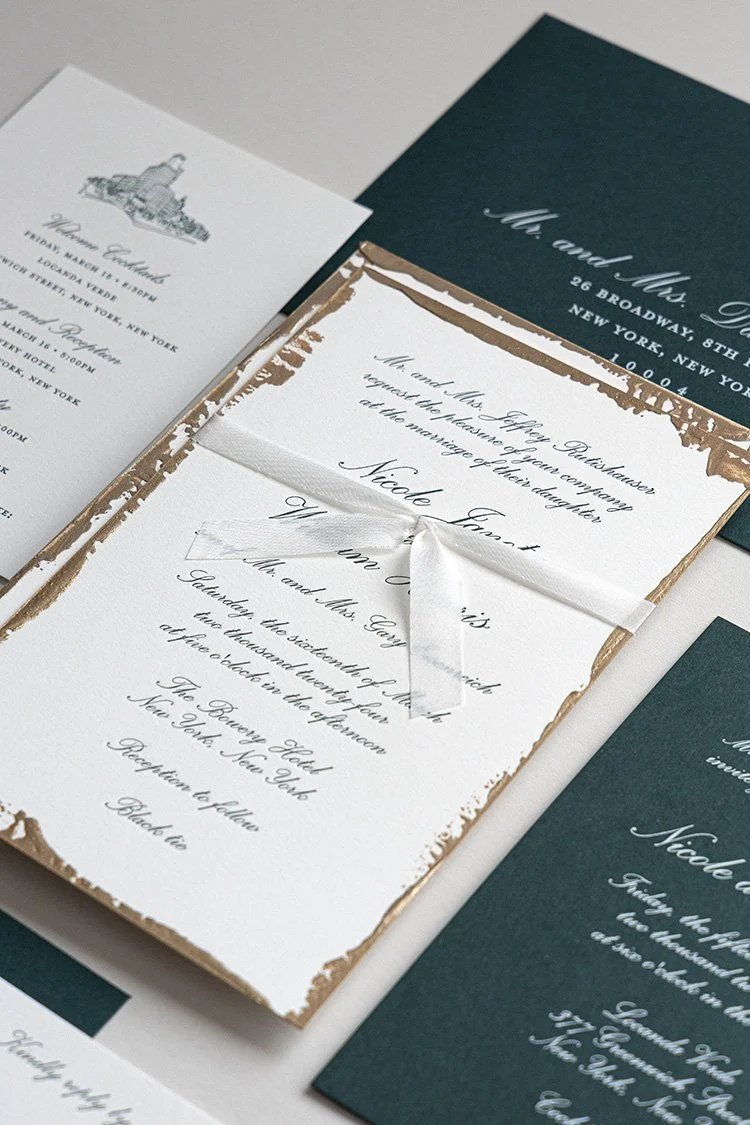 Welcome Cocktails
FRIDAY, MARCH 15 • 6:30PM
LOCANDA VERDE
STREET, NEW YORK, NEW YORK
and Reception
MARCH 16 • 5:00PM
HOTEL
NEW YORK, NEW YORK
Mr. and Mrs.
26 BROADWAY, 8TH
NEW YORK, NEW
10004
Mr. and Mrs. Jeffrey Rutishauser
request the pleasure of your company
at the marriage of their daughter
Nicole
Mr. and Mrs. Gary
Saturday, the sixteenth of March
two thousand twenty-four
at five o'clock in the afternoon
The Bowery Hotel
New York, New York
Reception to follow
Black tie
Nicole
Friday, the
two thousand
at six o'clock in the
Locanda Verde
377 Greenwich Street
New York, New
Kindly reply by